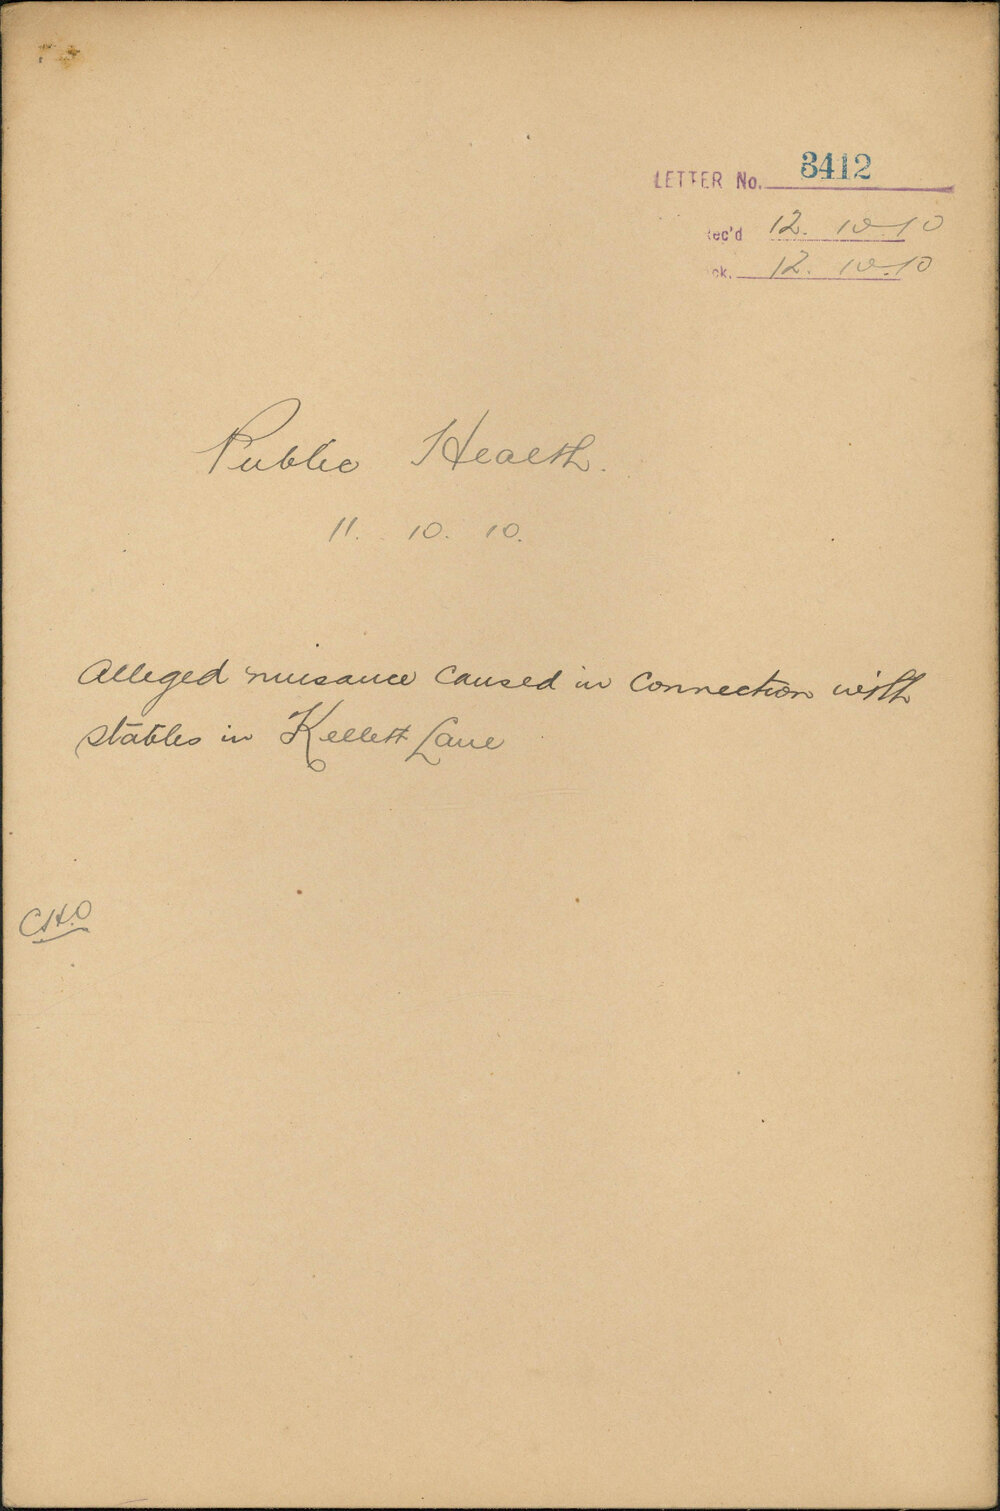 LETTER No. 3412
Rec'd 12. 10.10
ck. 12. 10.10
Public Health.
11. 10. 10.
Alleged nuisance caused in connection with
stables in Kellett Lane
CHO